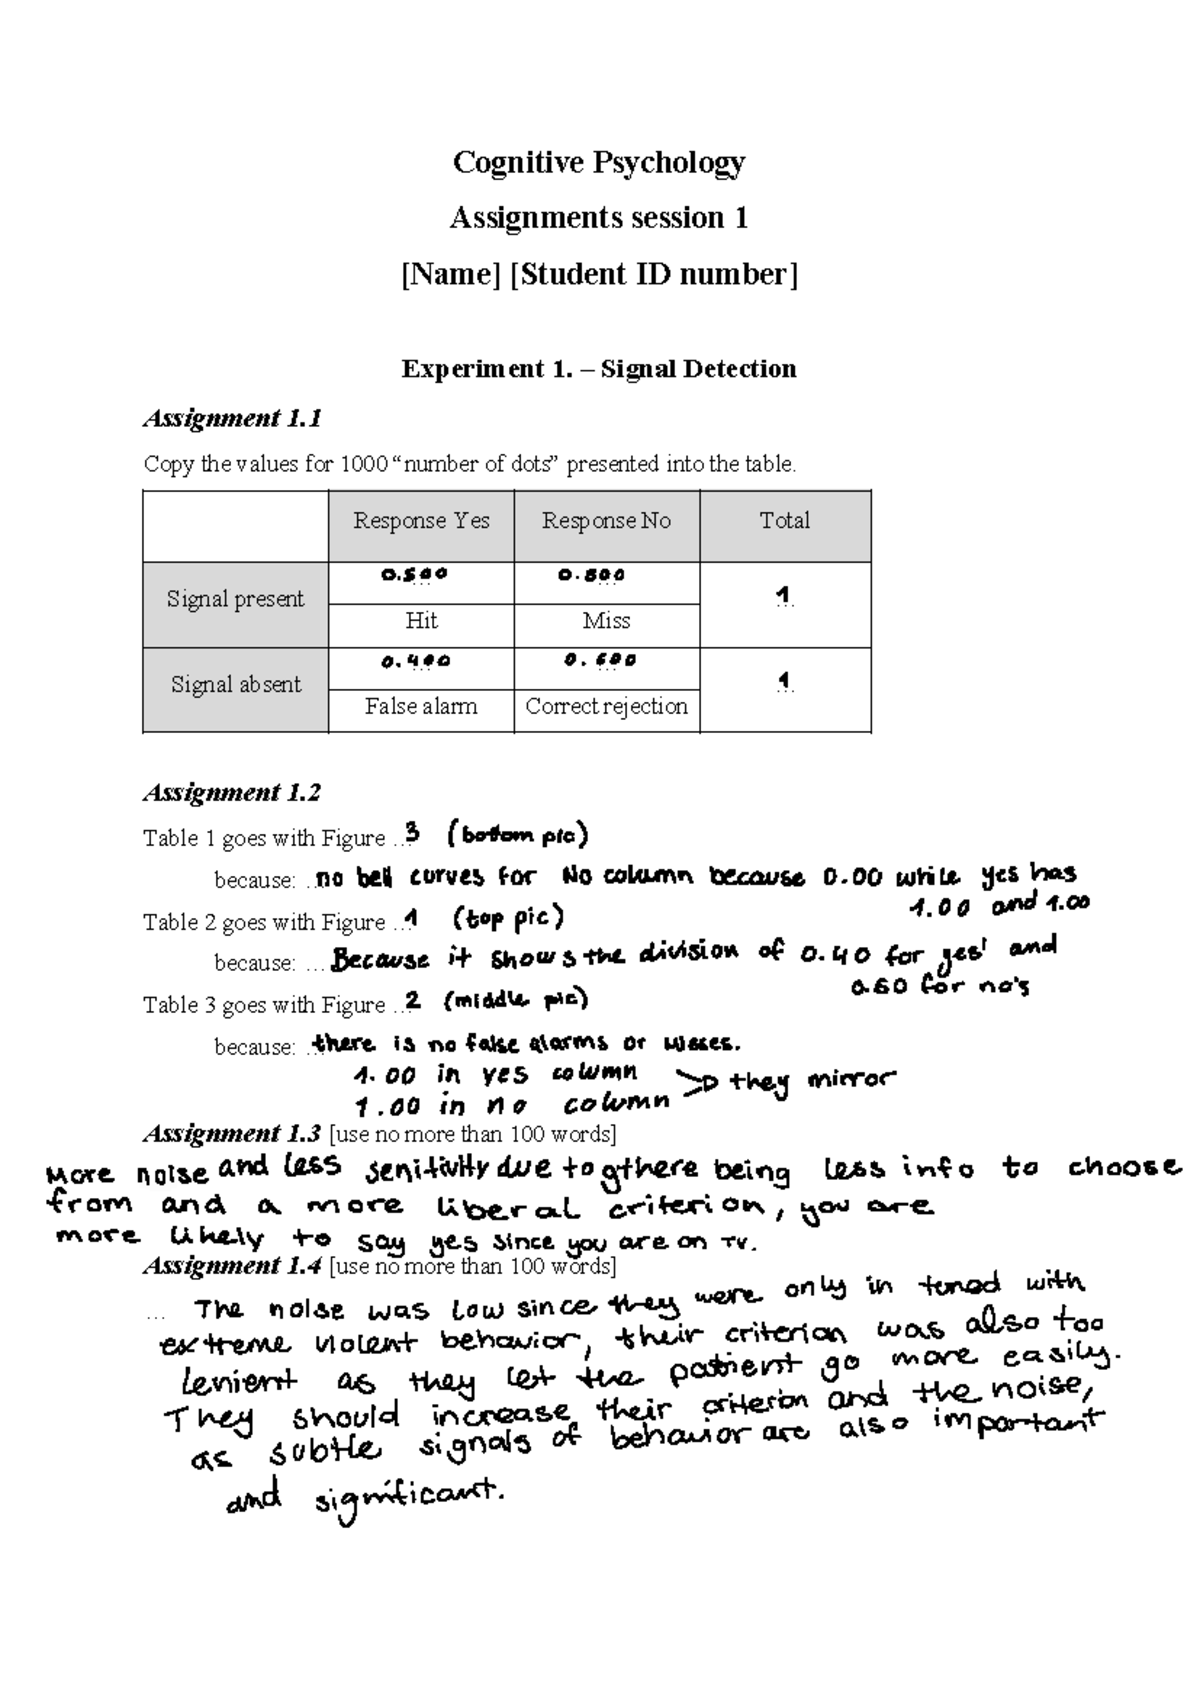 Cognitive Psychology
Assignments session 1
[Name] [Student ID number]
Experiment 1. – Signal Detection
Assignment 1.1
Copy the values for 1000 “number of dots” presented into the table.
Response Yes Response No Total
0.500 0.500
Signal present 1
Hit Miss
0.400 0.600
Signal absent 1
False alarm Correct rejection
Assignment 1.2
Table 1 goes with Figure ... 3 (bottom pic)
because: ... no bell curves for No column because 0.00 while yes has
1.00 and 1.00
Table 2 goes with Figure ... 1 (top pic)
because: ... Because it shows the division of 0.40 for yes' and
0.60 for no's
Table 3 goes with Figure ... 2 (middle pic)
because: ... there is no false alarms or misses.
1.00 in yes column
1.00 in no column > they mirror
Assignment 1.3 [use no more than 100 words]
More noise and less senitivity due to gthere being less info to choose
from and a more liberal criterion, you are
more likely to say yes since you are on TV.
Assignment 1.4 [use no more than 100 words]
... The noise was low since they were only in tuned with
extreme violent behavior, their criterion was also too
lenient as they let the patient go more easily.
They should increase their criterion and the noise,
as subtle signals of behavior are also important
and significant.